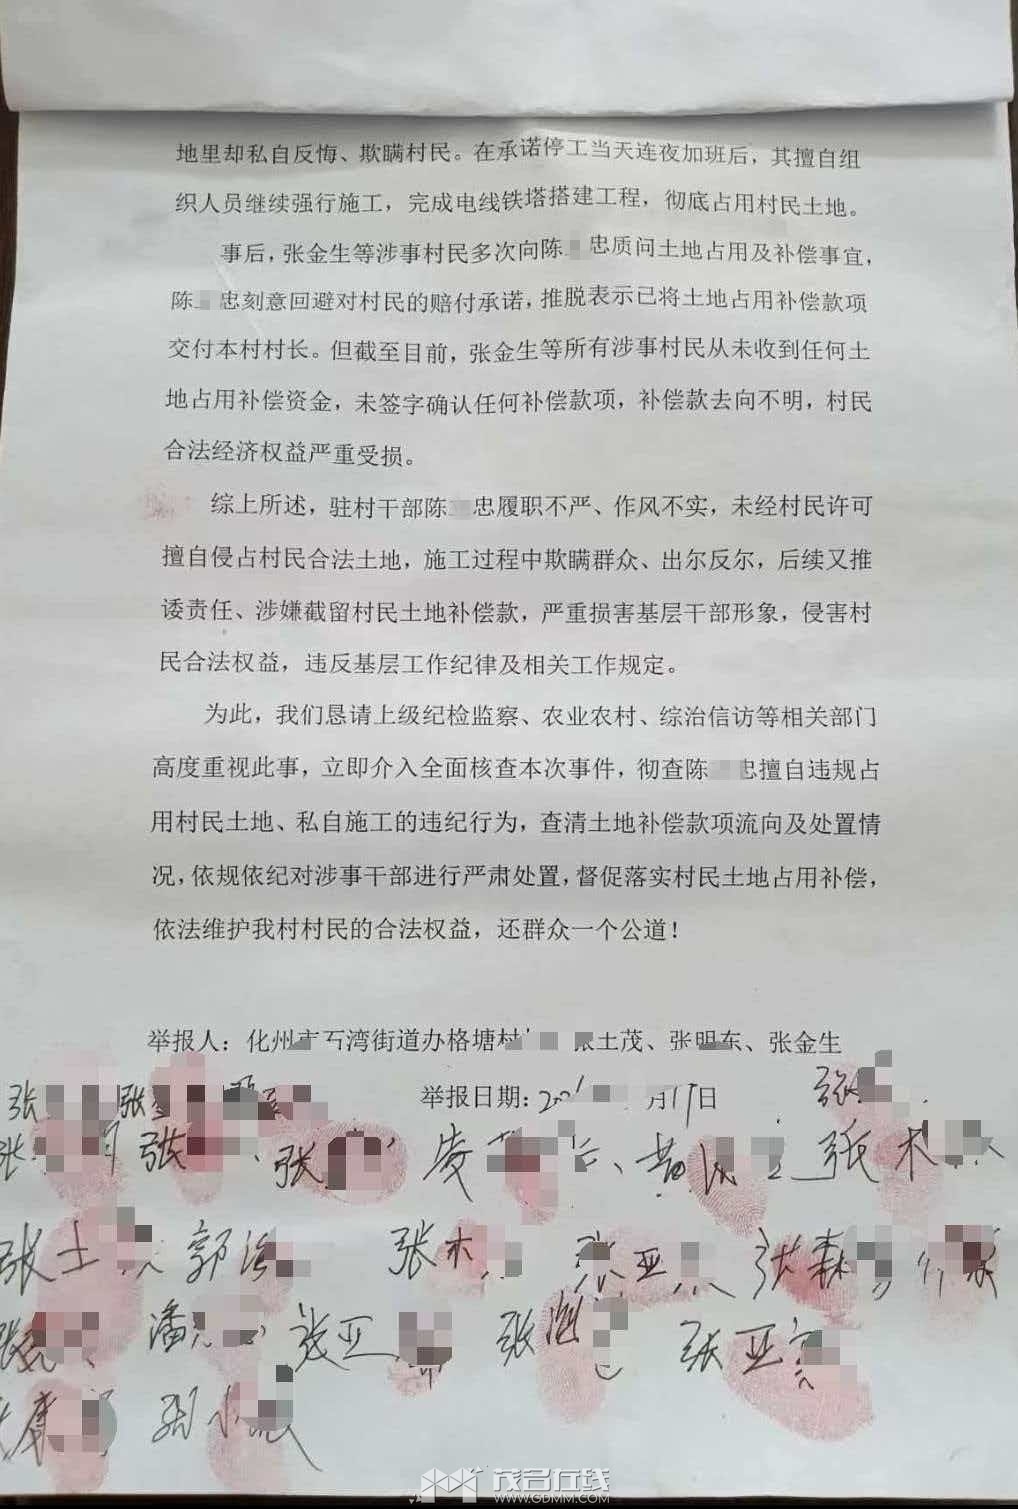 地里却私自反悔、欺瞒村民。在承诺停工当天连夜加班后，其擅自组
织人员继续强行施工，完成电线铁塔搭建工程，彻底占用村民土地。
事后，张金生等涉事村民多次向陈 忠质问土地占用及补偿事宜，
陈 忠刻意回避对村民的赔付承诺，推脱表示已将土地占用补偿款项
交付本村村长。但截至目前，张金生等所有涉事村民从未收到任何土
地占用补偿资金，未签字确认任何补偿款项，补偿款去向不明，村民
合法经济权益严重受损。
综上所述，驻村干部陈 忠履职不严、作风不实，未经村民许可
擅自侵占村民合法土地，施工过程中欺瞒群众、出尔反尔，后续又推
诿责任、涉嫌截留村民土地补偿款，严重损害基层干部形象，侵害村
民合法权益，违反基层工作纪律及相关工作规定。
为此，我们恳请上级纪检监察、农业农村、综治信访等相关部门
高度重视此事，立即介入全面核查本次事件，彻查陈 忠擅自违规占
用村民土地、私自施工的违纪行为，查清土地补偿款项流向及处置情
况，依规依纪对涉事干部进行严肃处置，督促落实村民土地占用补偿，
依法维护我村村民的合法权益，还群众一个公道！
举报人：化州市石湾街道办格塘村 张土茂、张明东、张金生
举报日期：20 月17日
张 张 张
张 张 张 凌 黄 张木
张土 郭 张木 张亚 张森
张 潘 张亚 张 张亚
张
茂名在线
WWW.GDMM.COM